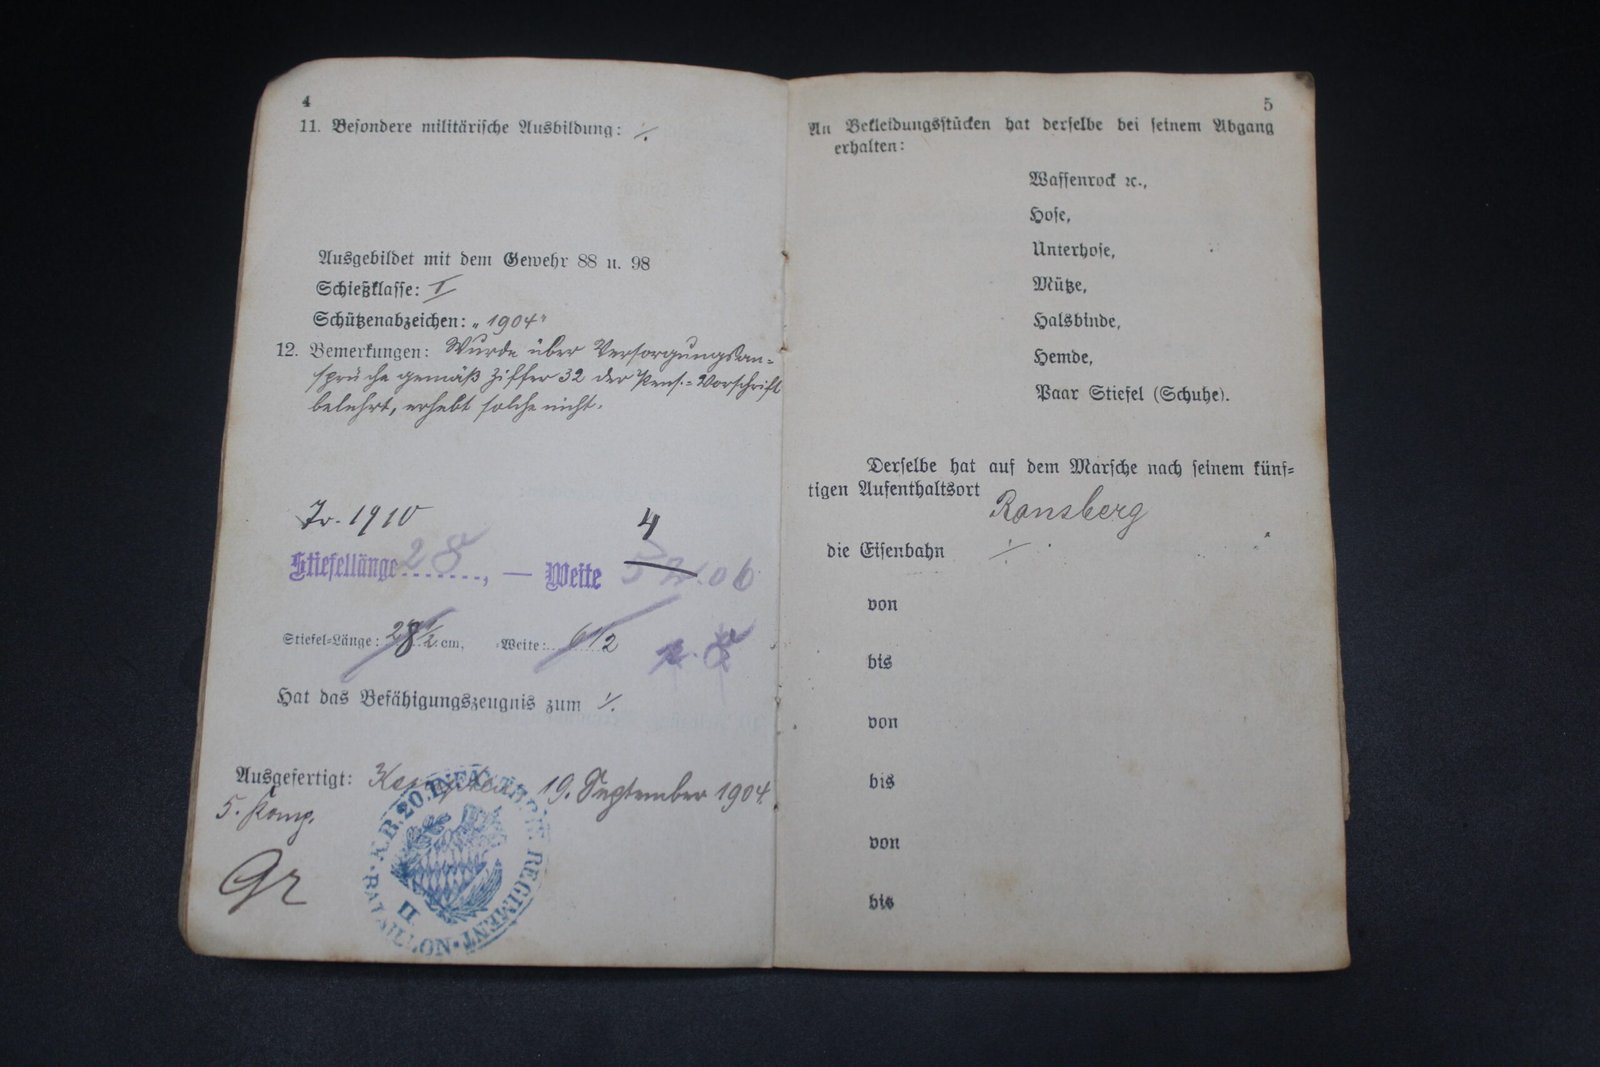 4
11. Besondere militärische Ausbildung: ./.
Ausgebildet mit dem Gewehr 88 u. 98
Schießklasse: I
Schützenabzeichen: „1904"
12. Bemerkungen: Wurde über Versorgungsan-
sprüche gemäß Ziffer 32 der Pens.-Vorschrift
belehrt, erhebt solche nicht.
Fr. 1910
4
Stiefellänge 28, — Weite
Stiefel-Länge: 28 1/2 cm, -Weite: 6 1/2
Hat das Befähigungszeugnis zum ./.
Ausgefertigt: Kempten 19. September 1904.
5. Komp.
K.B. 20. INFANTERIE REGIMENT
II. BATAILLON
5
An Bekleidungsstücken hat derselbe bei seinem Abgang
erhalten:
Waffenrock ꝛc.,
Hose,
Unterhose,
Mütze,
Halsbinde,
Hemde,
Paar Stiefel (Schuhe).
Derselbe hat auf dem Marsche nach seinem künf-
tigen Aufenthaltsort Ronsberg
die Eisenbahn ./.
von
bis
von
bis
von
bis